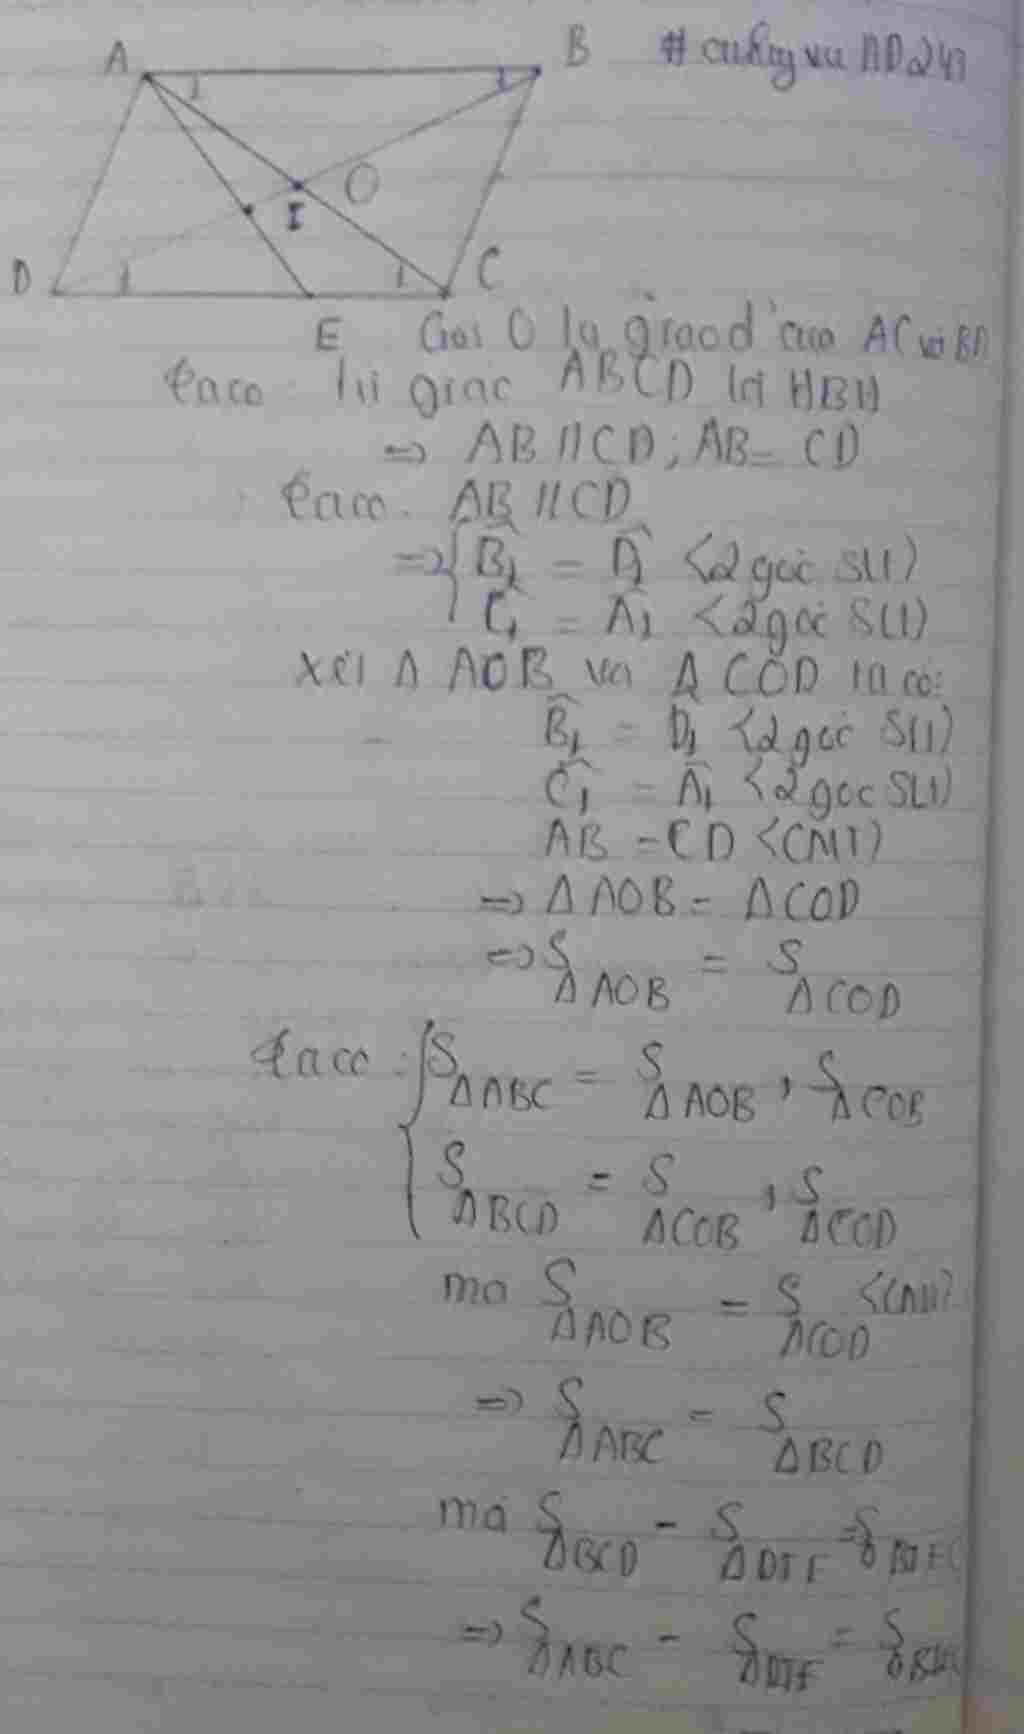 A
B
O
I
D
C
E
Gọi O là giaođ của AC với BD
taco: Tứ giác ABCD là HBH
=> AB // CD ; AB = CD
taco. AB // CD
=> B̂₁ = D̂₁ <2 góc SLT>
Ĉ₁ = Â₁ <2 góc SLT>
xét Δ AOB và Δ COD ta có:
B̂₁ = D̂₁ <2 góc SLT>
Ĉ₁ = Â₁ <2 góc SLT>
AB = CD <CMT>
=> Δ AOB = Δ COD
=> S Δ AOB = S Δ COD
taco: S Δ ABC = S Δ AOB + S Δ COB
S Δ BCD = S Δ COB + S Δ COD
mà S Δ AOB = S Δ COD <CMT>
=> S Δ ABC = S Δ BCD
mà S Δ BCD - S Δ DIE = S
=> S Δ ABC - S Δ DIE = S